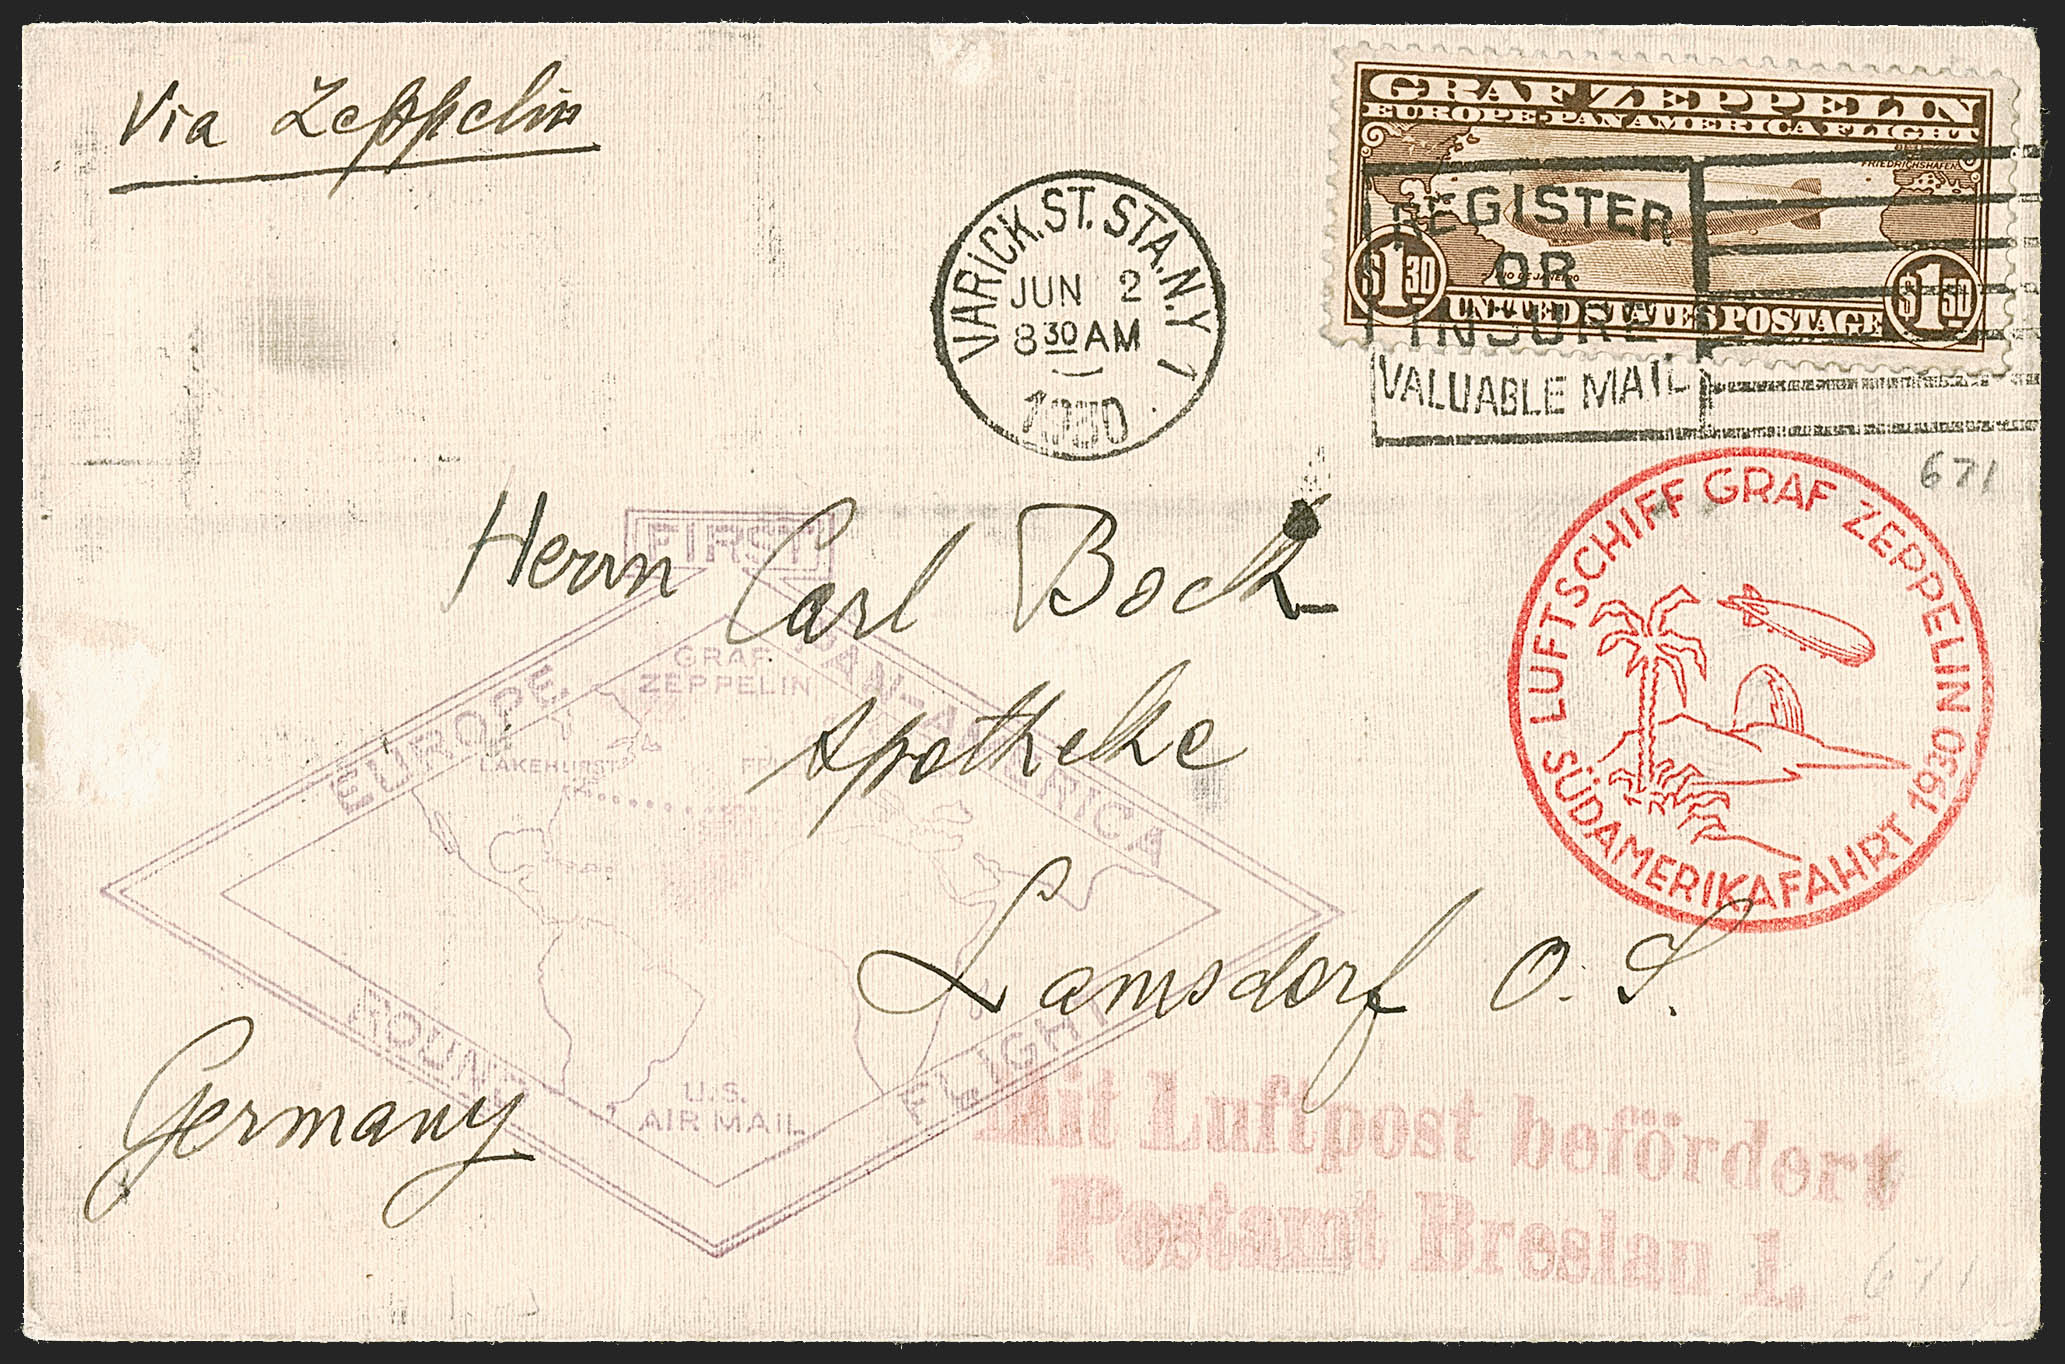 Via Zeppelin
GRAF ZEPPELIN
EUROPE-PAN AMERICA FLIGHT
FRIEDRICHSHAFEN
RIO DE JANEIRO
$1.30
$1.30
UNITED STATES POSTAGE
VARICK. ST. STA. N.Y. 1
JUN 2
8 30 AM
1930
REGISTER
OR
INSURE
VALUABLE MAIL
671
LUFTSCHIFF GRAF ZEPPELIN
SÜDAMERIKAFAHRT 1930
FIRST
EUROPE
PAN-AMERICA
ROUND
FLIGHT
GRAF
ZEPPELIN
LAKEHURST
U.S.
AIR MAIL
Herrn Carl Bock
Apotheke
Lamsdorf O. S.
Germany
Mit Luftpost befördert
Postamt Breslau 1.
671